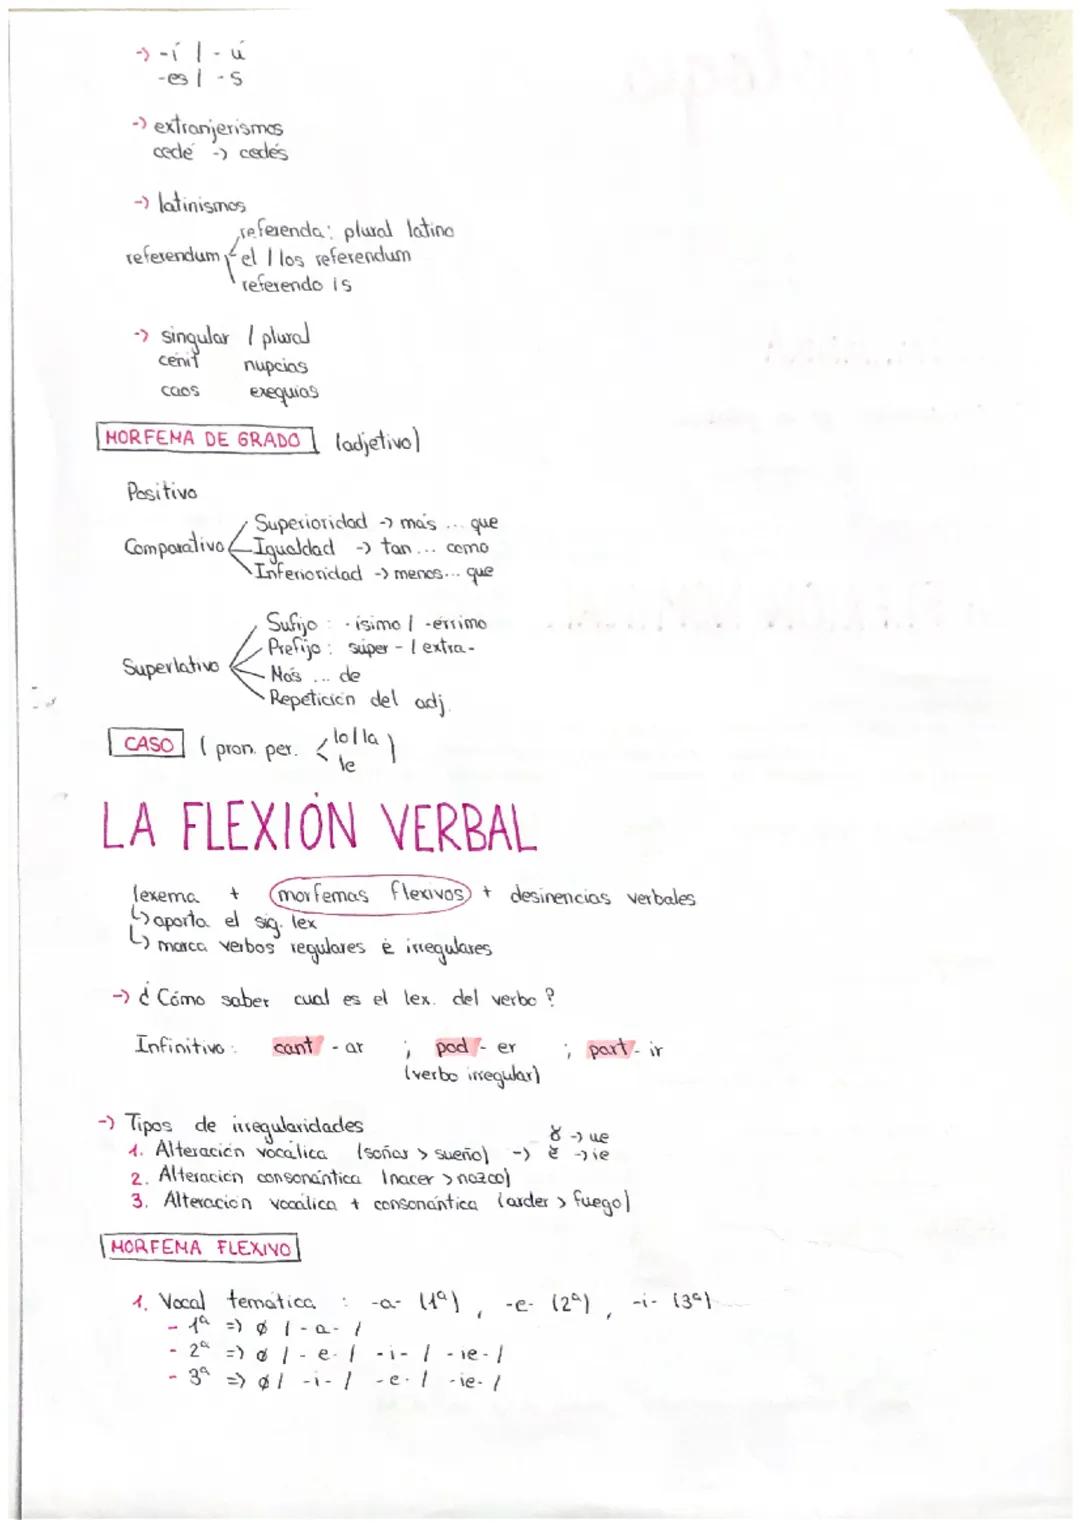 -> -í / -ú
-es / -s
-> extranjerismos
cedé -> cedés
-> latinismos
referenda: plural latino
referendum el / los referendum
referendo is
-> singular / plural
cenit nupcias
caos exequias
MORFEMA DE GRADO (adjetivo)
Positivo
Superioridad -> más ... que
Comparativo Igualdad -> tan ... como
Inferioridad -> menos ... que
Sufijo : -ísimo / -érrimo
Prefijo : súper - / extra-
Superlativo
Más ... de
Repetición del adj.
CASO ( pron. per. < lo / la )
le
LA FLEXIÓN VERBAL
lexema + morfemas flexivos + desinencias verbales
↳ aporta el sig. lex
↳ marca verbos regulares e irregulares
-> ¿Cómo saber cual es el lex. del verbo?
Infinitivo: cant - ar ; pod - er ; part - ir
(verbo irregular)
-> Tipos de irregularidades
ŏ -> ue
1. Alteración vocálica (soñar > sueño) -> ĕ -> ie
2. Alteración consonántica (nacer > nazco)
3. Alteración vocálica + consonántica (arder > fuego)
MORFEMA FLEXIVO
1. Vocal temática : -a- (1ª), -e- (2ª), -i- (3ª)
- 1ª => ø / -a- /
- 2ª => ø / -e- / -i- / -ie- /
- 3ª => ø / -i- / -e- / -ie- /